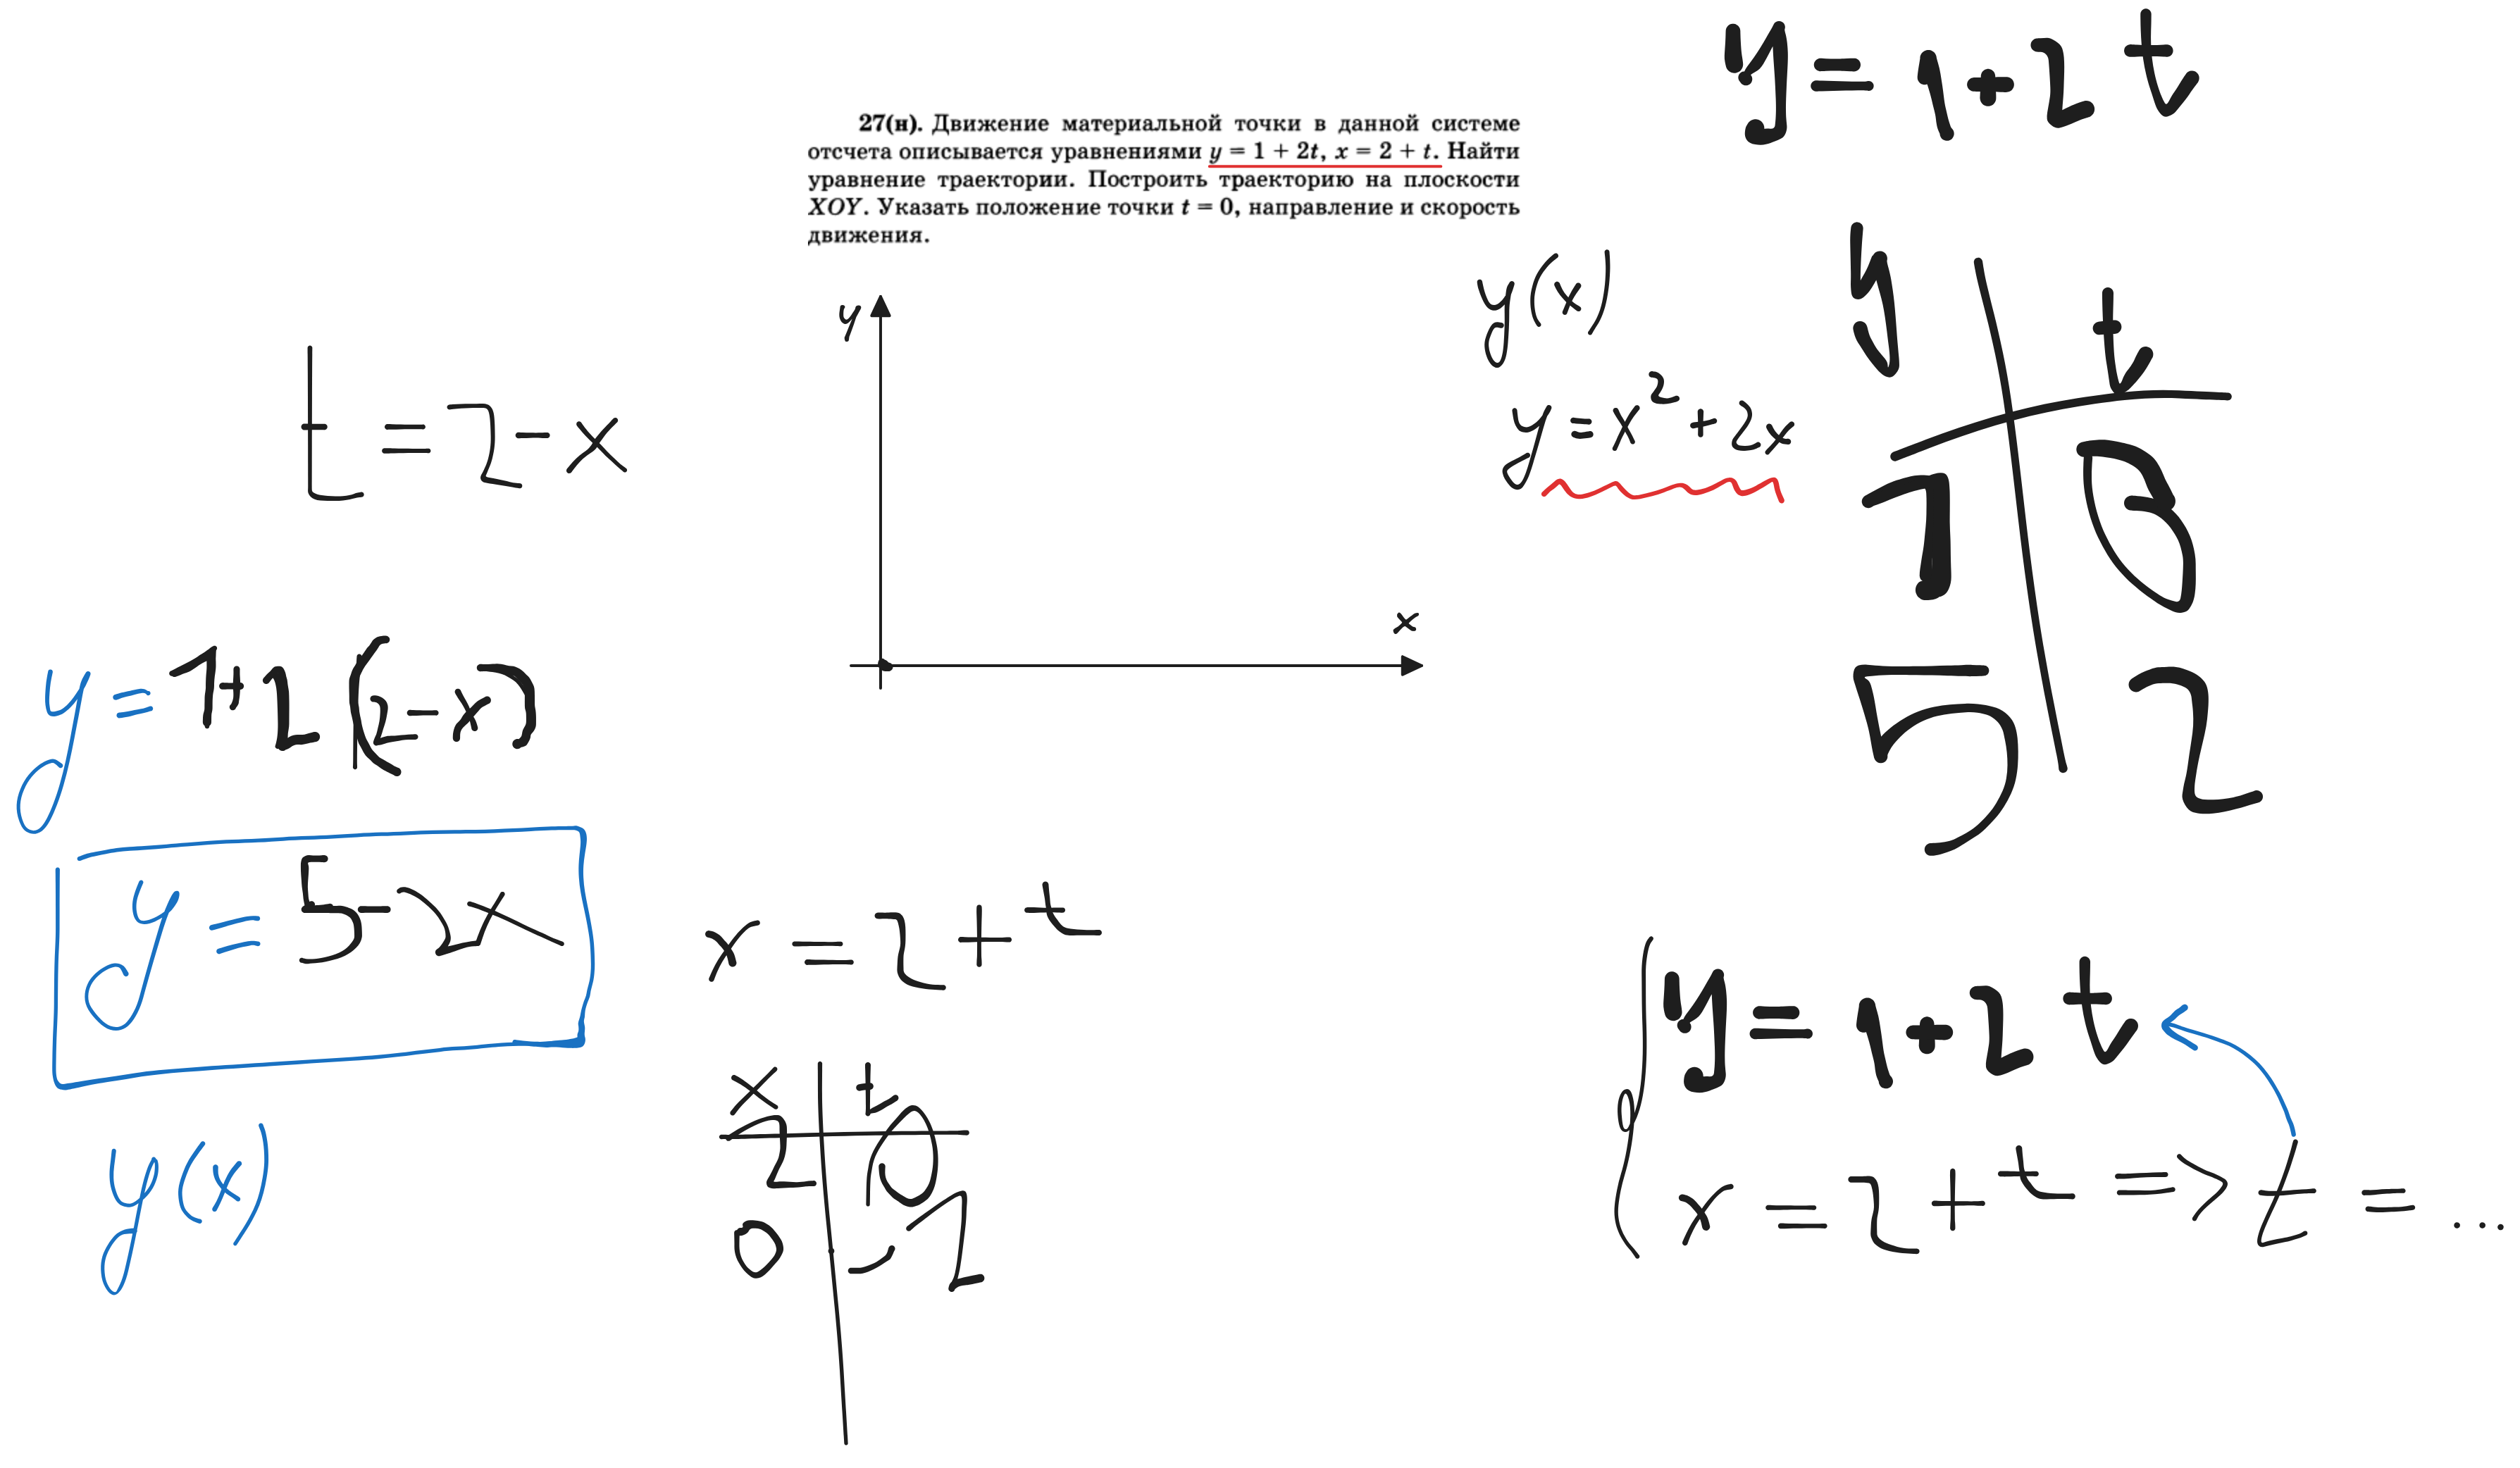 y = 1 + 2t
27(н). Движение материальной точки в данной системе
отсчета описывается уравнениями y = 1 + 2t, x = 2 + t. Найти
уравнение траектории. Построить траекторию на плоскости
XOY. Указать положение точки t = 0, направление и скорость
движения.
y
x
y(x)
y = x² + 2x
y t
1 0
5 2
t = 2 - x
y = 1 + 2(2 - x)
y = 5 - 2x
y(x)
x = 2 + t
x t
2 0
0 -2
y = 1 + 2t
x = 2 + t => t = ...